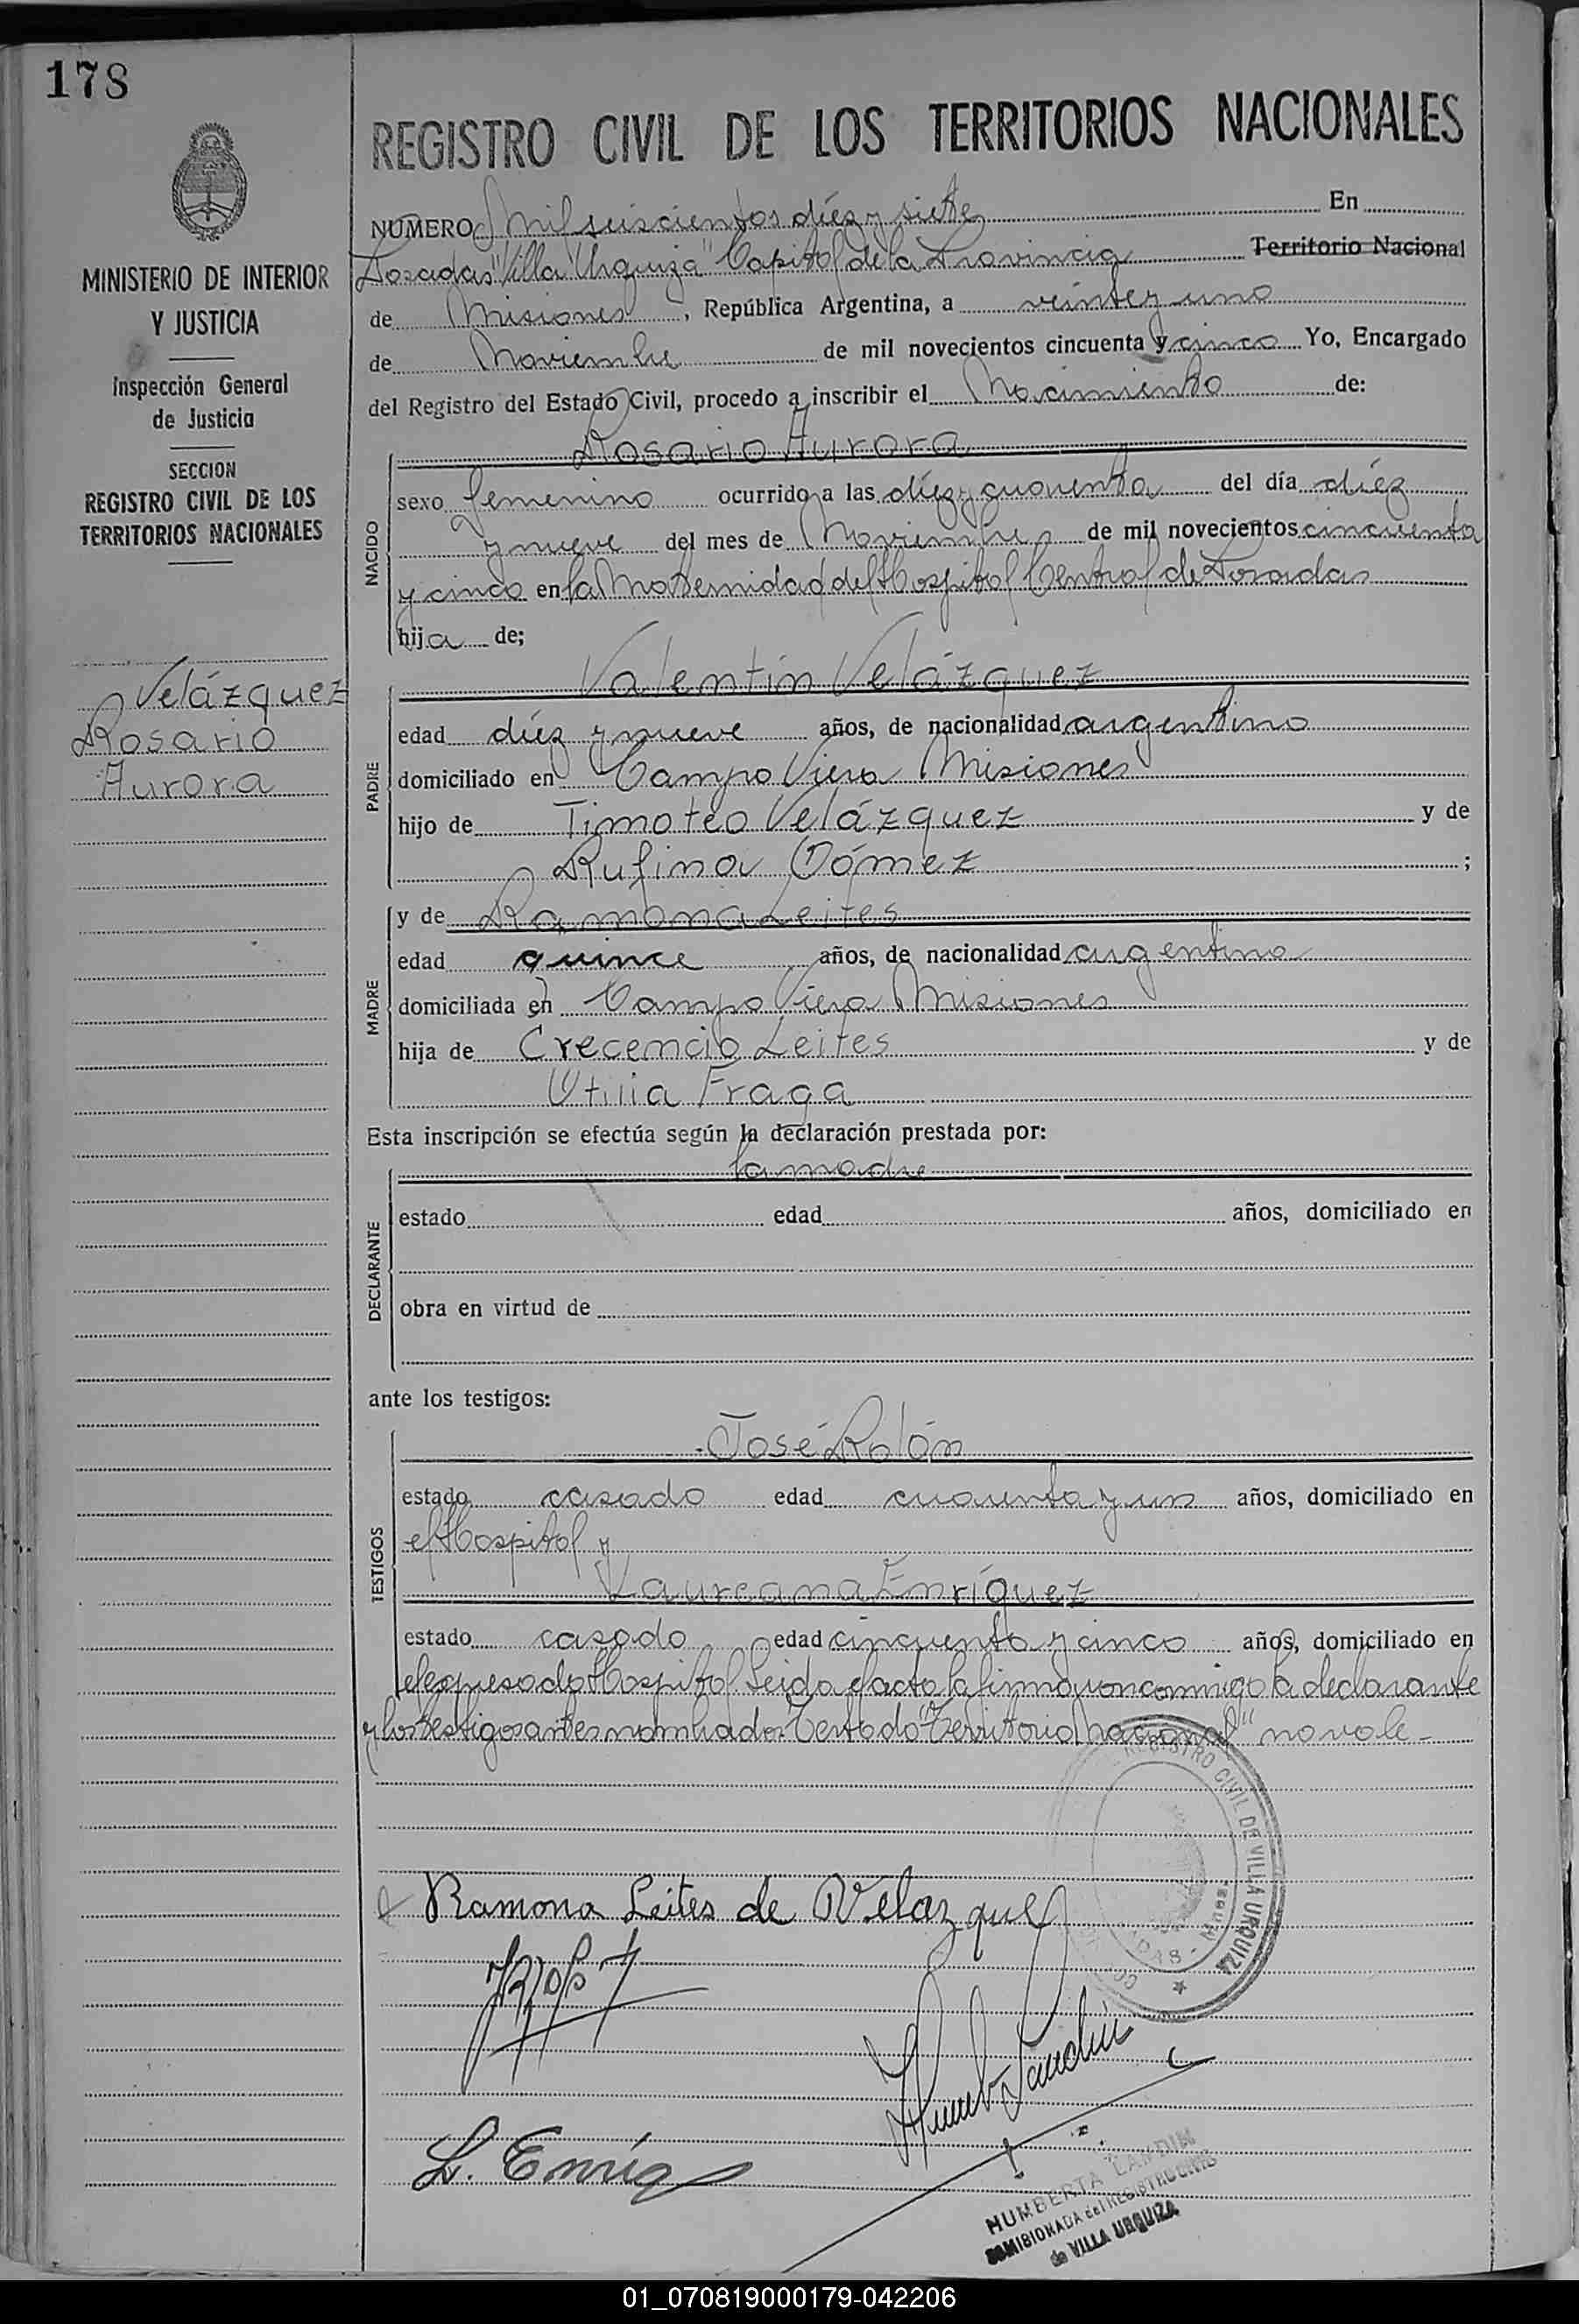 178
REGISTRO CIVIL DE LOS TERRITORIOS NACIONALES
MINISTERIO DE INTERIOR
Y JUSTICIA
Inspección General
de Justicia
SECCION
REGISTRO CIVIL DE LOS
TERRITORIOS NACIONALES
Velázquez
Rosario
Aurora
NUMERO Mil seiscientos diéz y siete En
Posadas "Villa Urquiza" Capital de la Provincia Territorio Nacional
de Misiones, República Argentina, a veinte y uno
de Noviembre de mil novecientos cincuenta y cinco Yo, Encargado
del Registro del Estado Civil, procedo a inscribir el Nacimiento de:
Rosario Aurora
NACIDO
sexo femenino ocurrido a las diéz y cuarenta del día diéz
y nueve del mes de Noviembre de mil novecientos cincuenta
y cinco en la Maternidad del Hospital Central de Posadas
hija de;
Valentín Velázquez
PADRE
edad diéz y nueve años, de nacionalidad argentino
domiciliado en Campo Viera Misiones
hijo de Timoteo Velázquez y de
Rufina Gómez ;
MADRE
y de Ramona Leites
edad quince años, de nacionalidad argentina
domiciliada en Campo Viera Misiones
hija de Crecencio Leites y de
Otilia Fraga
Esta inscripción se efectúa según la declaración prestada por:
la madre
DECLARANTE
estado edad años, domiciliado en
obra en virtud de
ante los testigos:
José Rolón
TESTIGOS
estado casado edad cuarenta y un años, domiciliado en
el Hospital y
Laureana Enríquez
estado casado edad cincuenta y cinco años, domiciliado en
el expresado Hospital Leida el acta la firmaron conmigo la declarante
y los testigos antes nombrados. Testado "Territorio Nacional" no vale
REGISTRO CIVIL DE VILLA URQUIZA
Ramona Leites de Velazquez
L. Enriq
HUMBERTA LANDIN
COMISIONADA del REGISTRO CIVIL
de VILLA URQUIZA
01_070819000179-042206